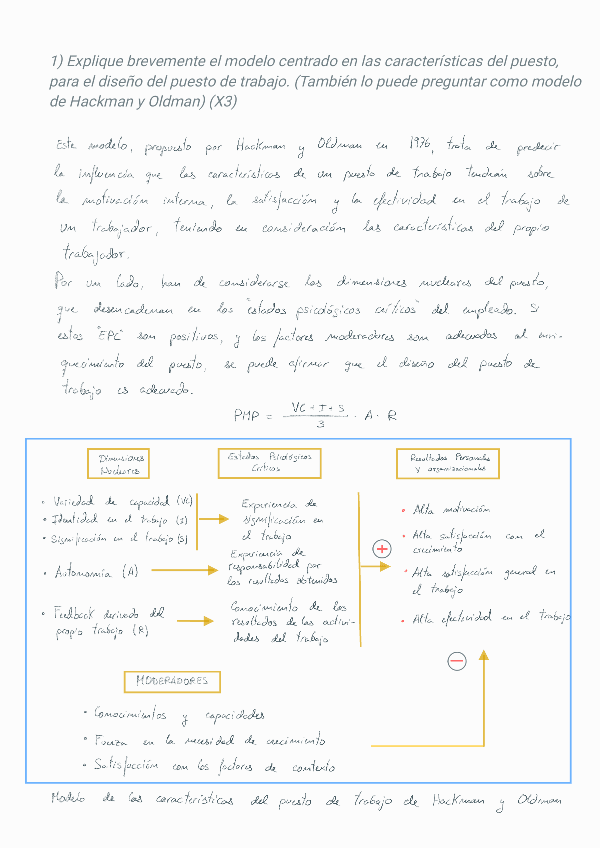 1) Explique brevemente el modelo centrado en las características del puesto,
para el diseño del puesto de trabajo. (También lo puede preguntar como modelo
de Hackman y Oldman) (X3)
Este modelo, propuesto por Hackman y Oldman en 1976, trata de predecir
la influencia que las características de un puesto de trabajo tendrán sobre
la motivación interna, la satisfacción y la efectividad en el trabajo de
un trabajador, teniendo en consideración las características del propio
trabajador.
Por un lado, han de considerarse las dimensiones nucleares del puesto,
que desencadenan en los "estados psicológicos críticos" del empleado. Si
estos "EPC" son positivos, y los factores moderadores son adecuados al enri-
quecimiento del puesto, se puede afirmar que el diseño del puesto de
trabajo es adecuado.
PMP = VC + I + S / 3 · A · R
Dimensiones
Nucleares
Estados Psicológicos
Críticos
Resultados Personales
y organizacionales
• Variedad de capacidad (VC)
• Identidad en el trabajo (I)
• Significación en el trabajo (S)
Experiencia de
significación en
el trabajo
• Autonomía (A)
Experiencia de
responsabilidad por
los resultados obtenidos
• Feedback derivado del
propio trabajo (R)
Conocimiento de los
resultados de las activi-
dades del trabajo
+
• Alta motivación
• Alta satisfacción con el
crecimiento
• Alta satisfacción general en
el trabajo
• Alta efectividad en el trabajo
−
MODERADORES
• Conocimientos y capacidades
• Fuerza en la necesidad de crecimiento
• Satisfacción con los factores de contexto
Modelo de las características del puesto de trabajo de Hackman y Oldman